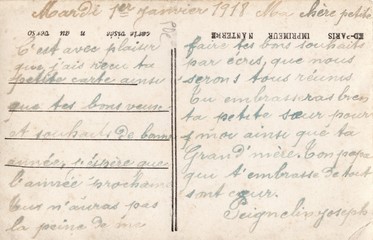 Mardi 1er janvier 1918 Ma chère petite
ED-PARIS IMPRIMEUR NANTERRE
C'est avec plaisir
que j'ais reçu ta
petite carte ainsi
que tes bons veux
et souhaits de bonne
année, j'éspire que
l'année prochaine
tu n'auras pas
la peine de me
faire tes bons souhaits
par écris, que nous
serons tous réunis
Tu embrasseras bien
ta petite sœur pour
moi ainsi que ta
Grand'mère. Ton papa
qui t'embrasse de tout
sont cœur.
Peignelin Joseph